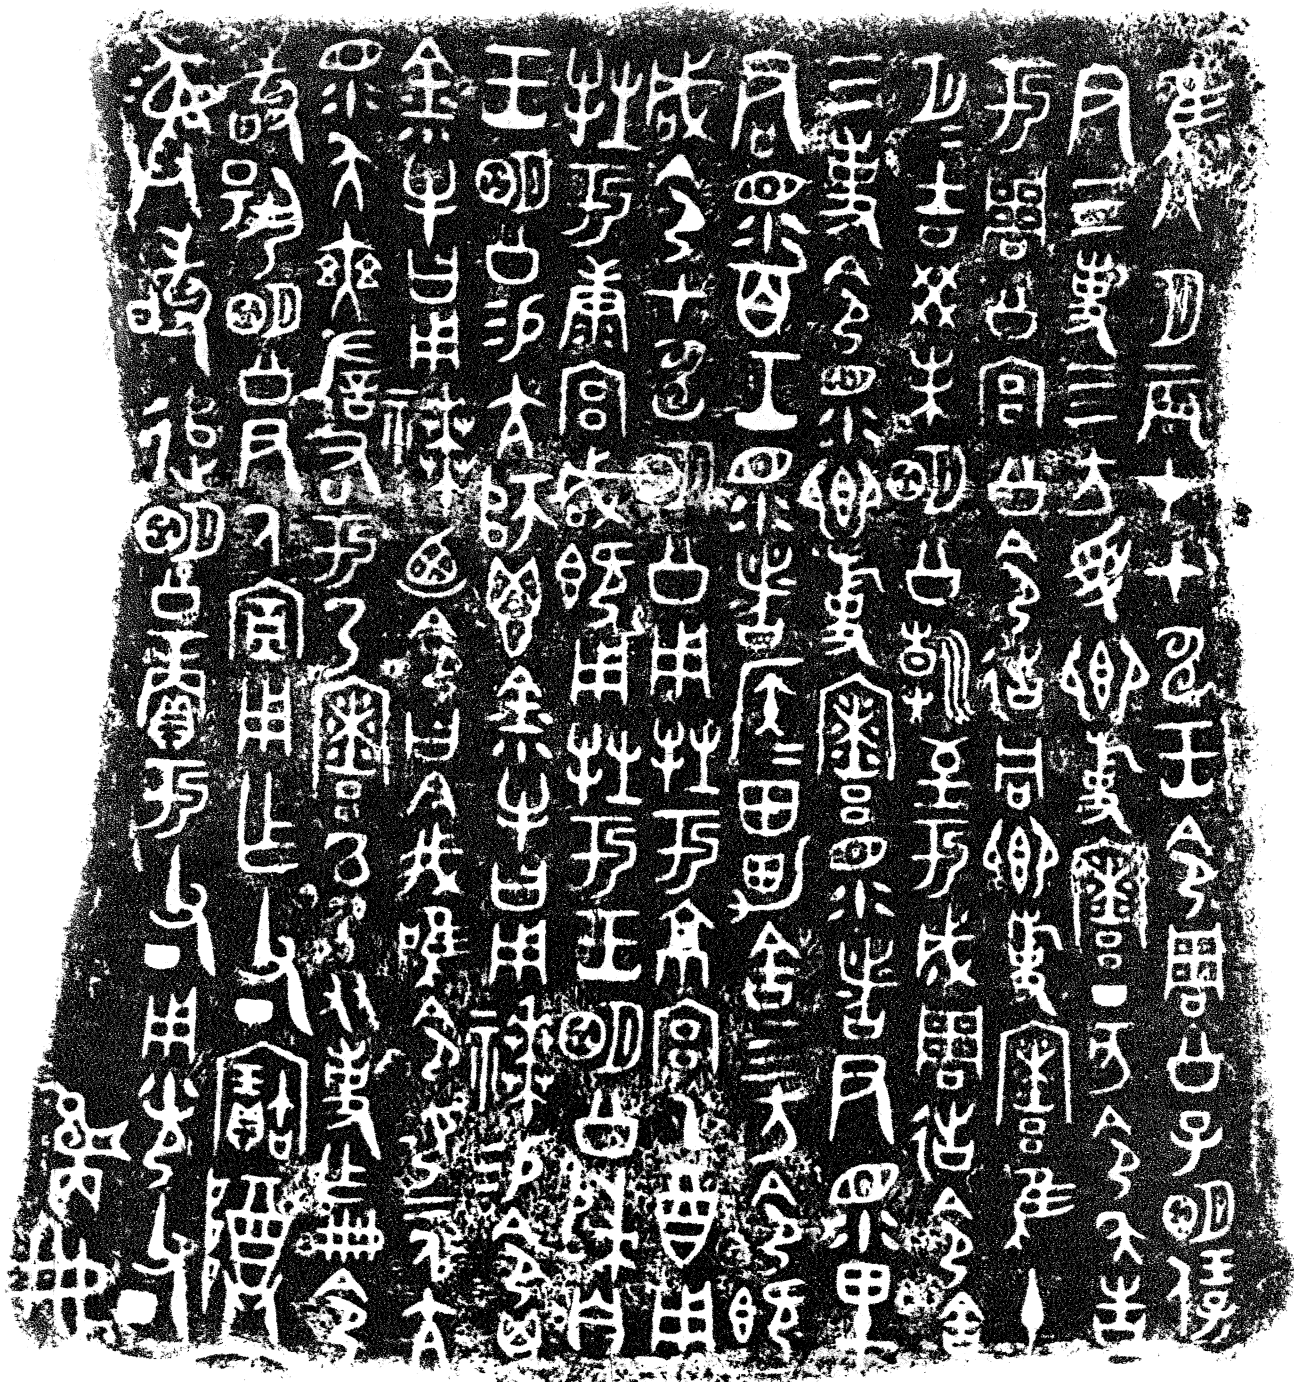 隹八月辰才甲申王令周公子明保
尹三事四方受卿事寮丁亥令夨告
于周公宫公令𢓊同卿事寮隹十
月月吉癸未明公朝至于成周𢓊令舍
三事令眔卿事寮眔者尹眔里
君眔百工眔者侯侯田男舍四方令既
咸令甲申明公用牲于京宫乙酉用
牲于康宫咸既用牲于王明公歸自
王明公易亢師鬯金小牛曰用𥛱易令鬯
金小牛曰用𥛱廼令曰今我唯令女二人亢
眔夨奭左右于乃寮以乃友事乍册令
敢揚明公尹厥宣用乍父丁寶尊彝
敢追明公賞于父丁用光父丁
雋册